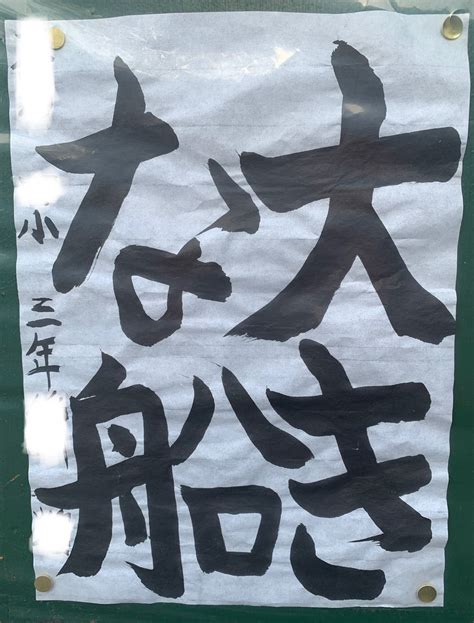 大き
な船
小 三年